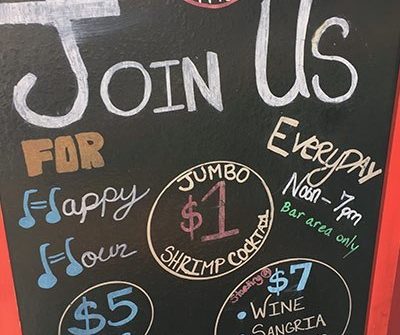 Join Us
FOR
Happy
Hour
EveryDAY
Noon - 7pm
Bar area only
JUMBO
$1
SHRIMP COCKTAIL
$5
Starting @
$7
• WINE
• SANGRIA